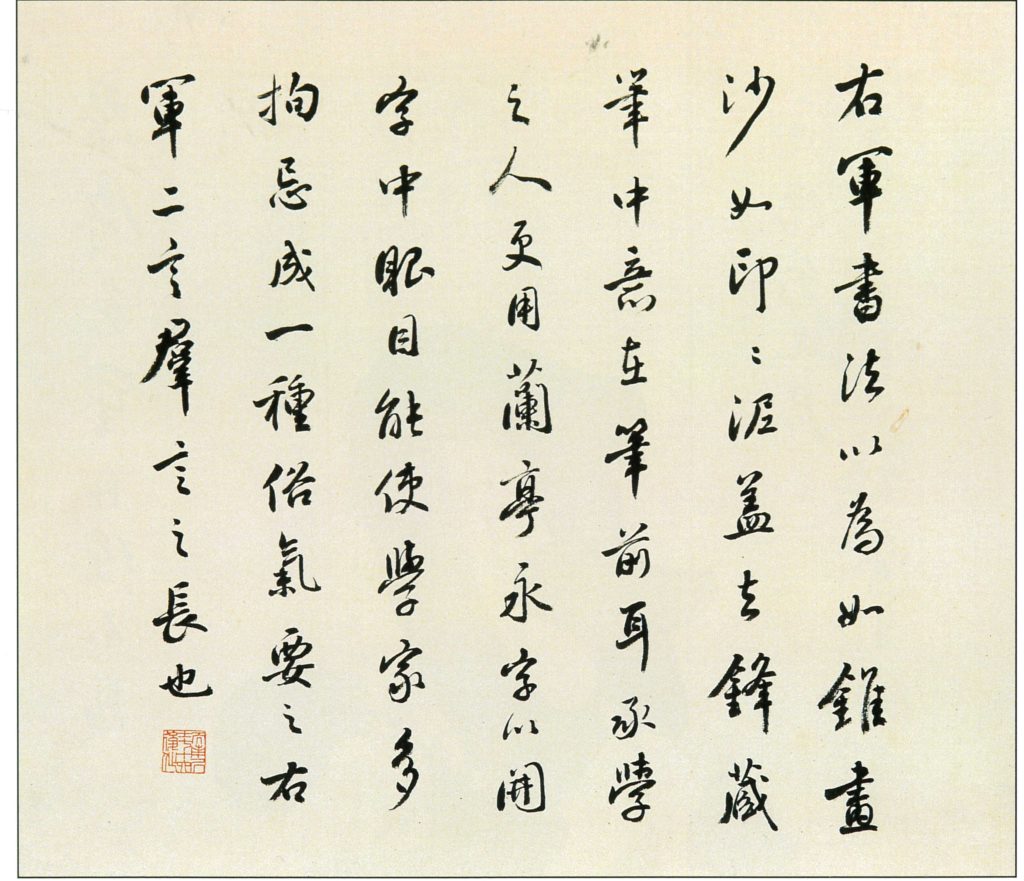 右軍書法以為如錐畫
沙如印々泥蓋言鋒藏
筆中意在筆前耳承學
之人更用蘭亭永字以開
字中眼目能使學家多
拘忌成一種俗氣要之右
軍二言羣言之長也